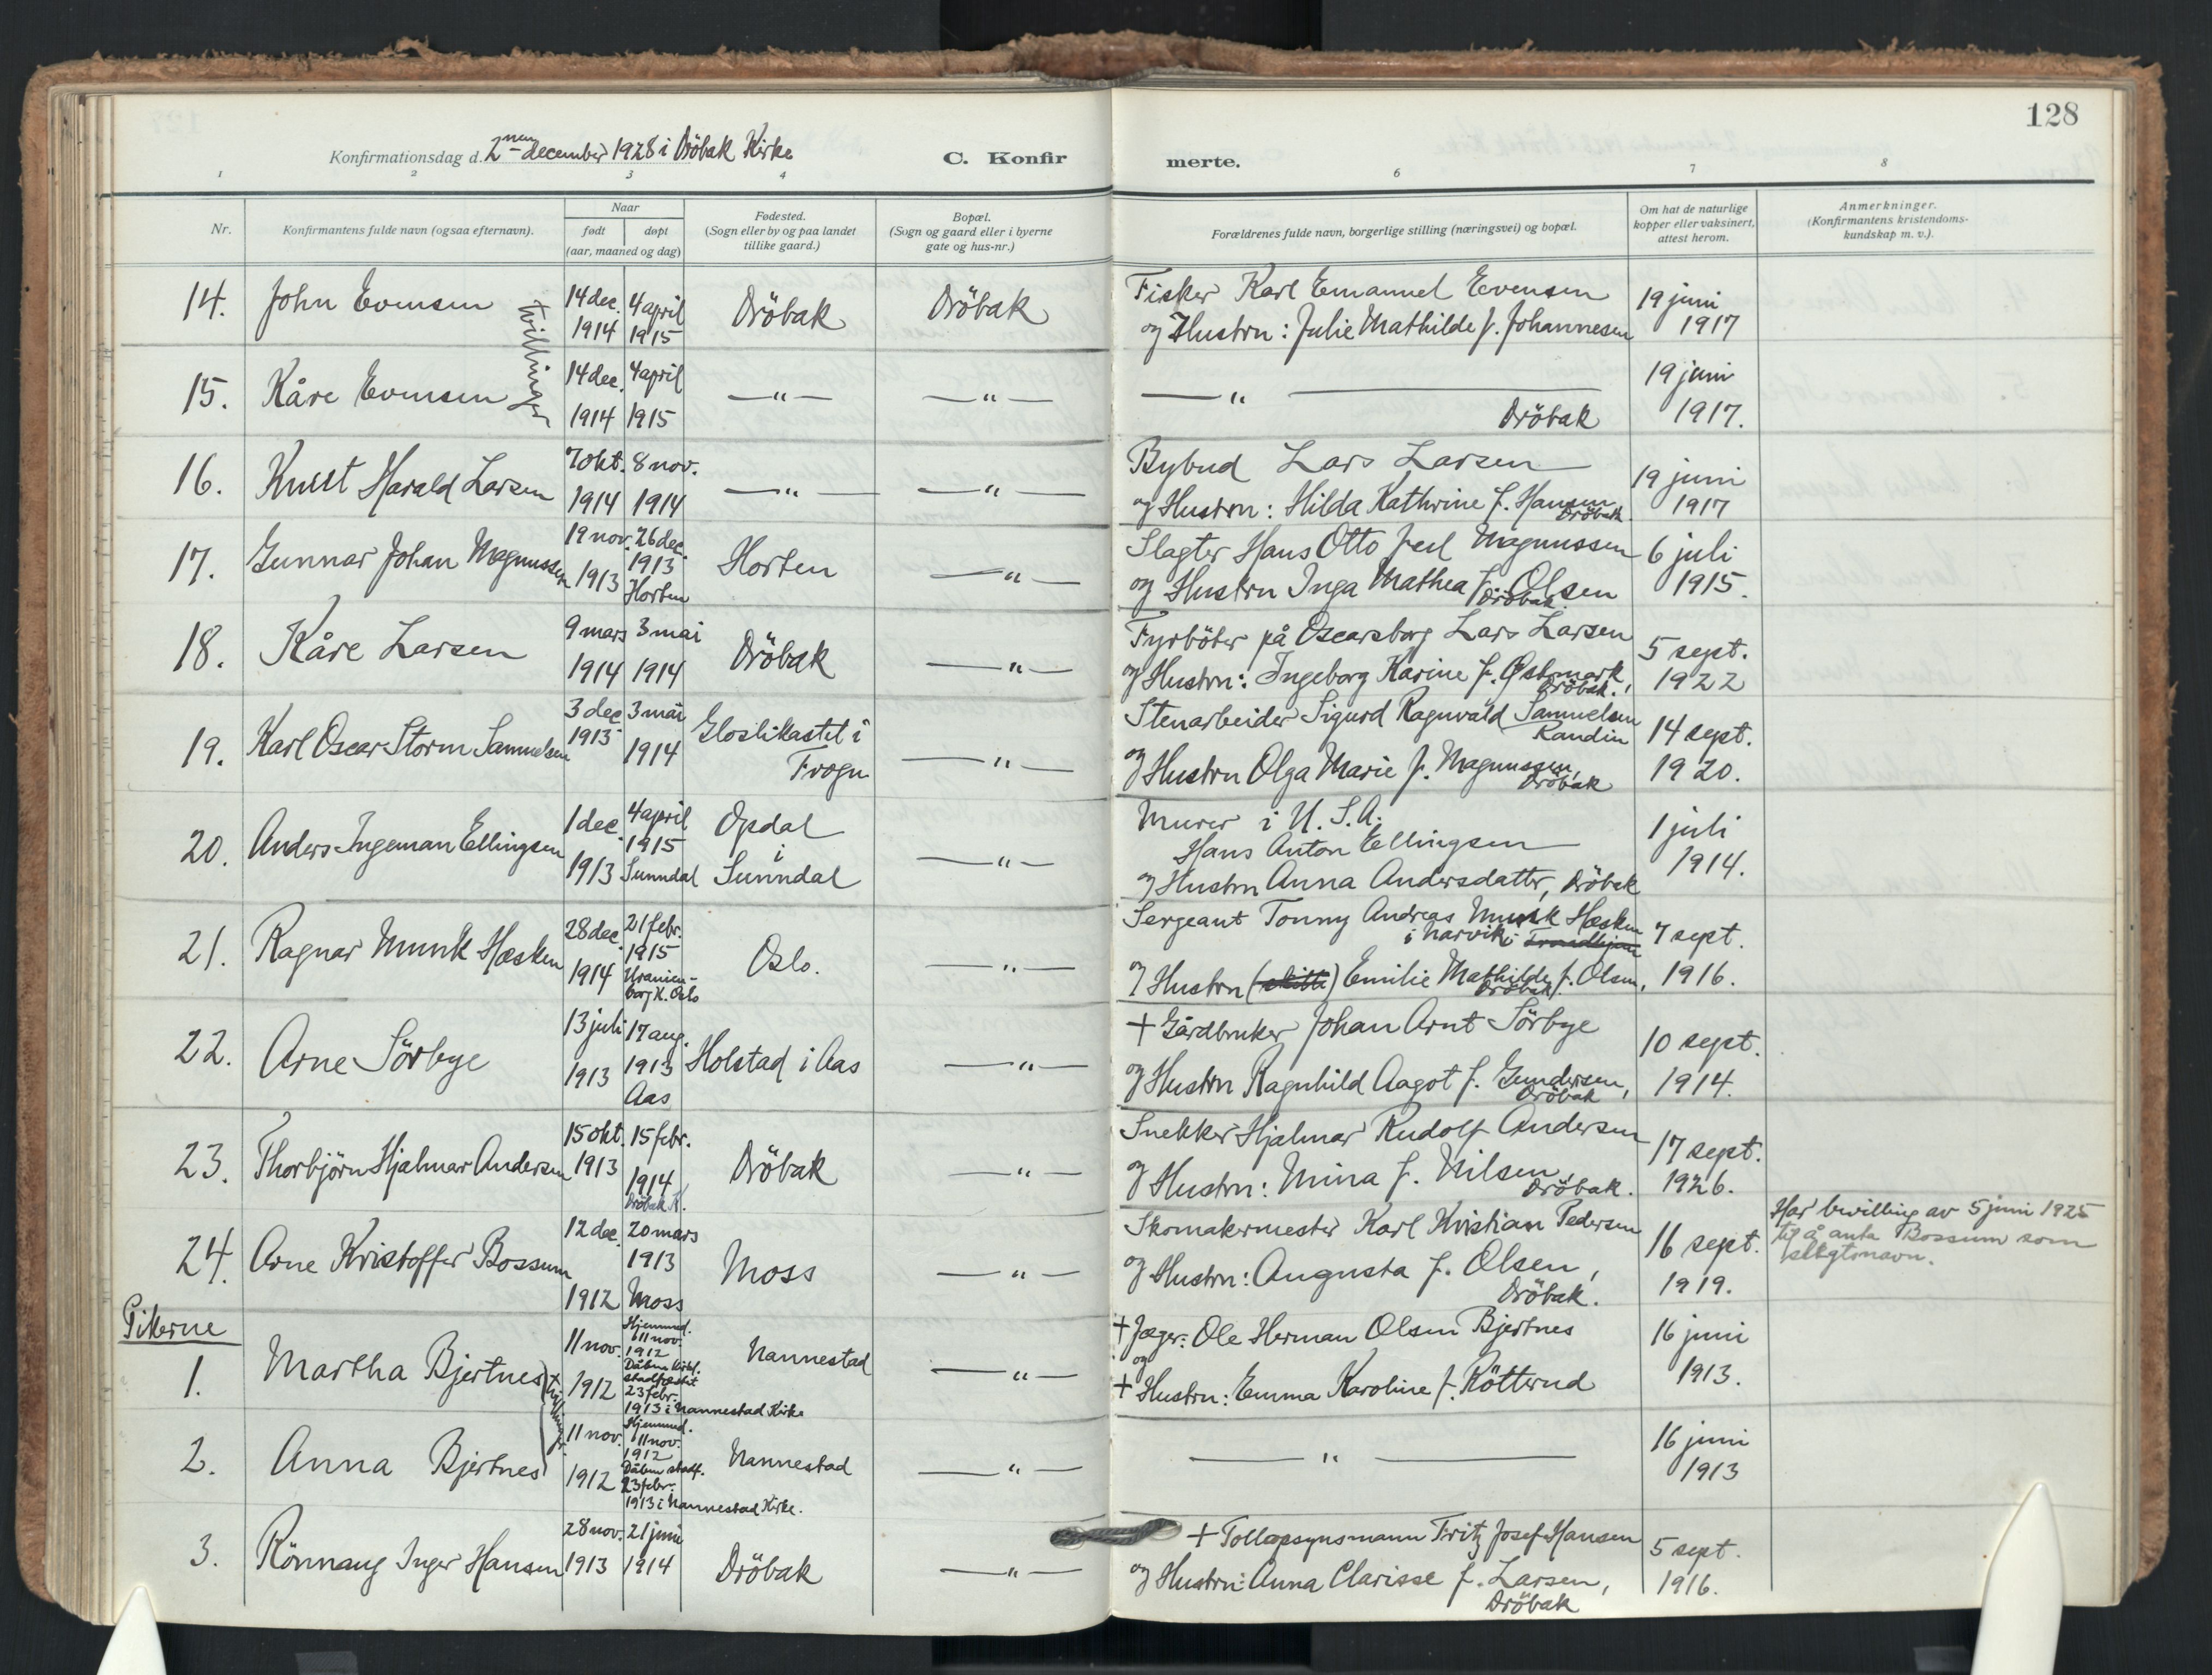 128
Konfirmationsdag d. 2nen december 1928 i Dröbak Kirke
C. Konfirmerte.
1 2 3 4 6 7 8
Nr.
Konfirmantens fulde navn (ogsaa efternavn).
Naar
født døpt
(aar, maaned og dag)
Fødested.
(Sogn eller by og paa landet
tillike gaard.)
Bopæl.
(Sogn og gaard eller i byerne
gate og hus-nr.)
Forældrenes fulde navn, borgerlige stilling (næringsvei) og bopæl.
Om hat de naturlige
kopper eller vaksinert,
attest herom.
Anmerkninger.
(Konfirmantens kristendoms-
kundskap m. v.).
14. John Evensen tvillinger 14 dec. 1914 4 april 1915 Dröbak Dröbak
Fisker Karl Emanuel Evensen
og Hustru: Julie Mathilde f. Johannesen
19 juni 1917
15. Kåre Evensen 14 dec. 1914 4 april 1915 —"— —"—
—"—
Dröbak
19 juni 1917.
16. Knut Harald Larsen 7 okt. 1914 8 nov. 1914 —"— —"—
Bybud Lars Larsen
og Hustru: Hilda Kathrine f. Hansen
Dröbak.
19 juni 1917
17. Gunnar Johan Magnussen 19 nov. 1913 26 dec. 1913 Horten Horten —"—
Slagter Hans Otto Magnussen
og Hustru Inga Mathea f. Olsen
Dröbak.
6 juli 1915.
18. Kåre Larsen 9 mars 1914 3 mai 1914 Dröbak —"—
Fyrböter på Oscarsborg Lars Larsen
og Hustru: Ingeborg Karine f. Østmark,
Dröbak.
5 sept. 1922
19. Karl Oscar Storm Samuelsen 3 dec 1913 3 mai 1914 Gloslikastet i Frogn —"—
Stenarbeider Sigurd Ragnvald Samuelsen
Randin
og Hustru Olga Marie f. Magnussen,
Dröbak
14 sept. 1920.
20. Anders Ingeman Ellingsen 1 dec. 1913 4 april 1915 Sunndal Opdal i Sunndal —"—
Murer i U.S.A.
Hans Anton Ellingsen
og Hustru Anna Andersdatter, Dröbak
1 juli 1914.
21. Ragnar Munk Hæsken 28 dec. 1914 21 febr. 1915 Uranien-
borg K. Oslo Oslo. —"—
Sergeant Tonny Andreas Munk Hæsken
i Narvik i Trondhjem
og Hustru (skilte) Emilie Mathilde f. Olsen,
Dröbak.
7 sept. 1916.
22. Arne Sörbye 13 juli 1913 17 aug. 1913 Aas Holstad i Aas —"—
+ Gårdbruker Johan Arnt Sörbye
og Hustru Ragnhild Aagot f. Gundersen,
Dröbak
10 sept. 1914.
23. Thorbjörn Hjalmar Andersen 15 okt. 1913 15 febr. 1914 Dröbak K. Dröbak —"—
Snekker Hjalmar Rudolf Andersen
og Hustru: Mina f. Nilsen,
Dröbak.
17 sept. 1926.
24. Arne Kristoffer Bossum 12 dec. 1912 20 mars 1913 Moss Moss —"—
Skomakermester Karl Kristian Pedersen
og Hustru: Augusta f. Olsen,
Dröbak.
16 sept. 1919.
Har bevilling av 5 juni 1925
til å anta Bossum som
slegtsnavn.
Pikerne
1. Martha Bjertnes tvillinger 11 nov. 1912 Hjemmed. 11 nov. 1912
Dåben kirkel. stadfæstet 23 febr.
1913 i Nannestad Kirke Nannestad —"—
+ Jæger: Ole Herman Olsen Bjertnes
og
+ Hustru: Emma Karoline f. Rötterud
16 juni 1913.
2. Anna Bjertnes 11 nov. 1912 Hjemmed. 11 nov. 1912
Dåben stadf. 23 febr.
1913 i Nannestad Kirke. Nannestad —"—
—"—
16 juni 1913
3. Rönnaug Inger Hansen 28 nov. 1913 21 juni 1914 Dröbak —"—
+ Tollopsynsmann Fritz Josef Hansen
og Hustru: Anna Clarisse f. Larsen,
Dröbak
5 sept. 1916.